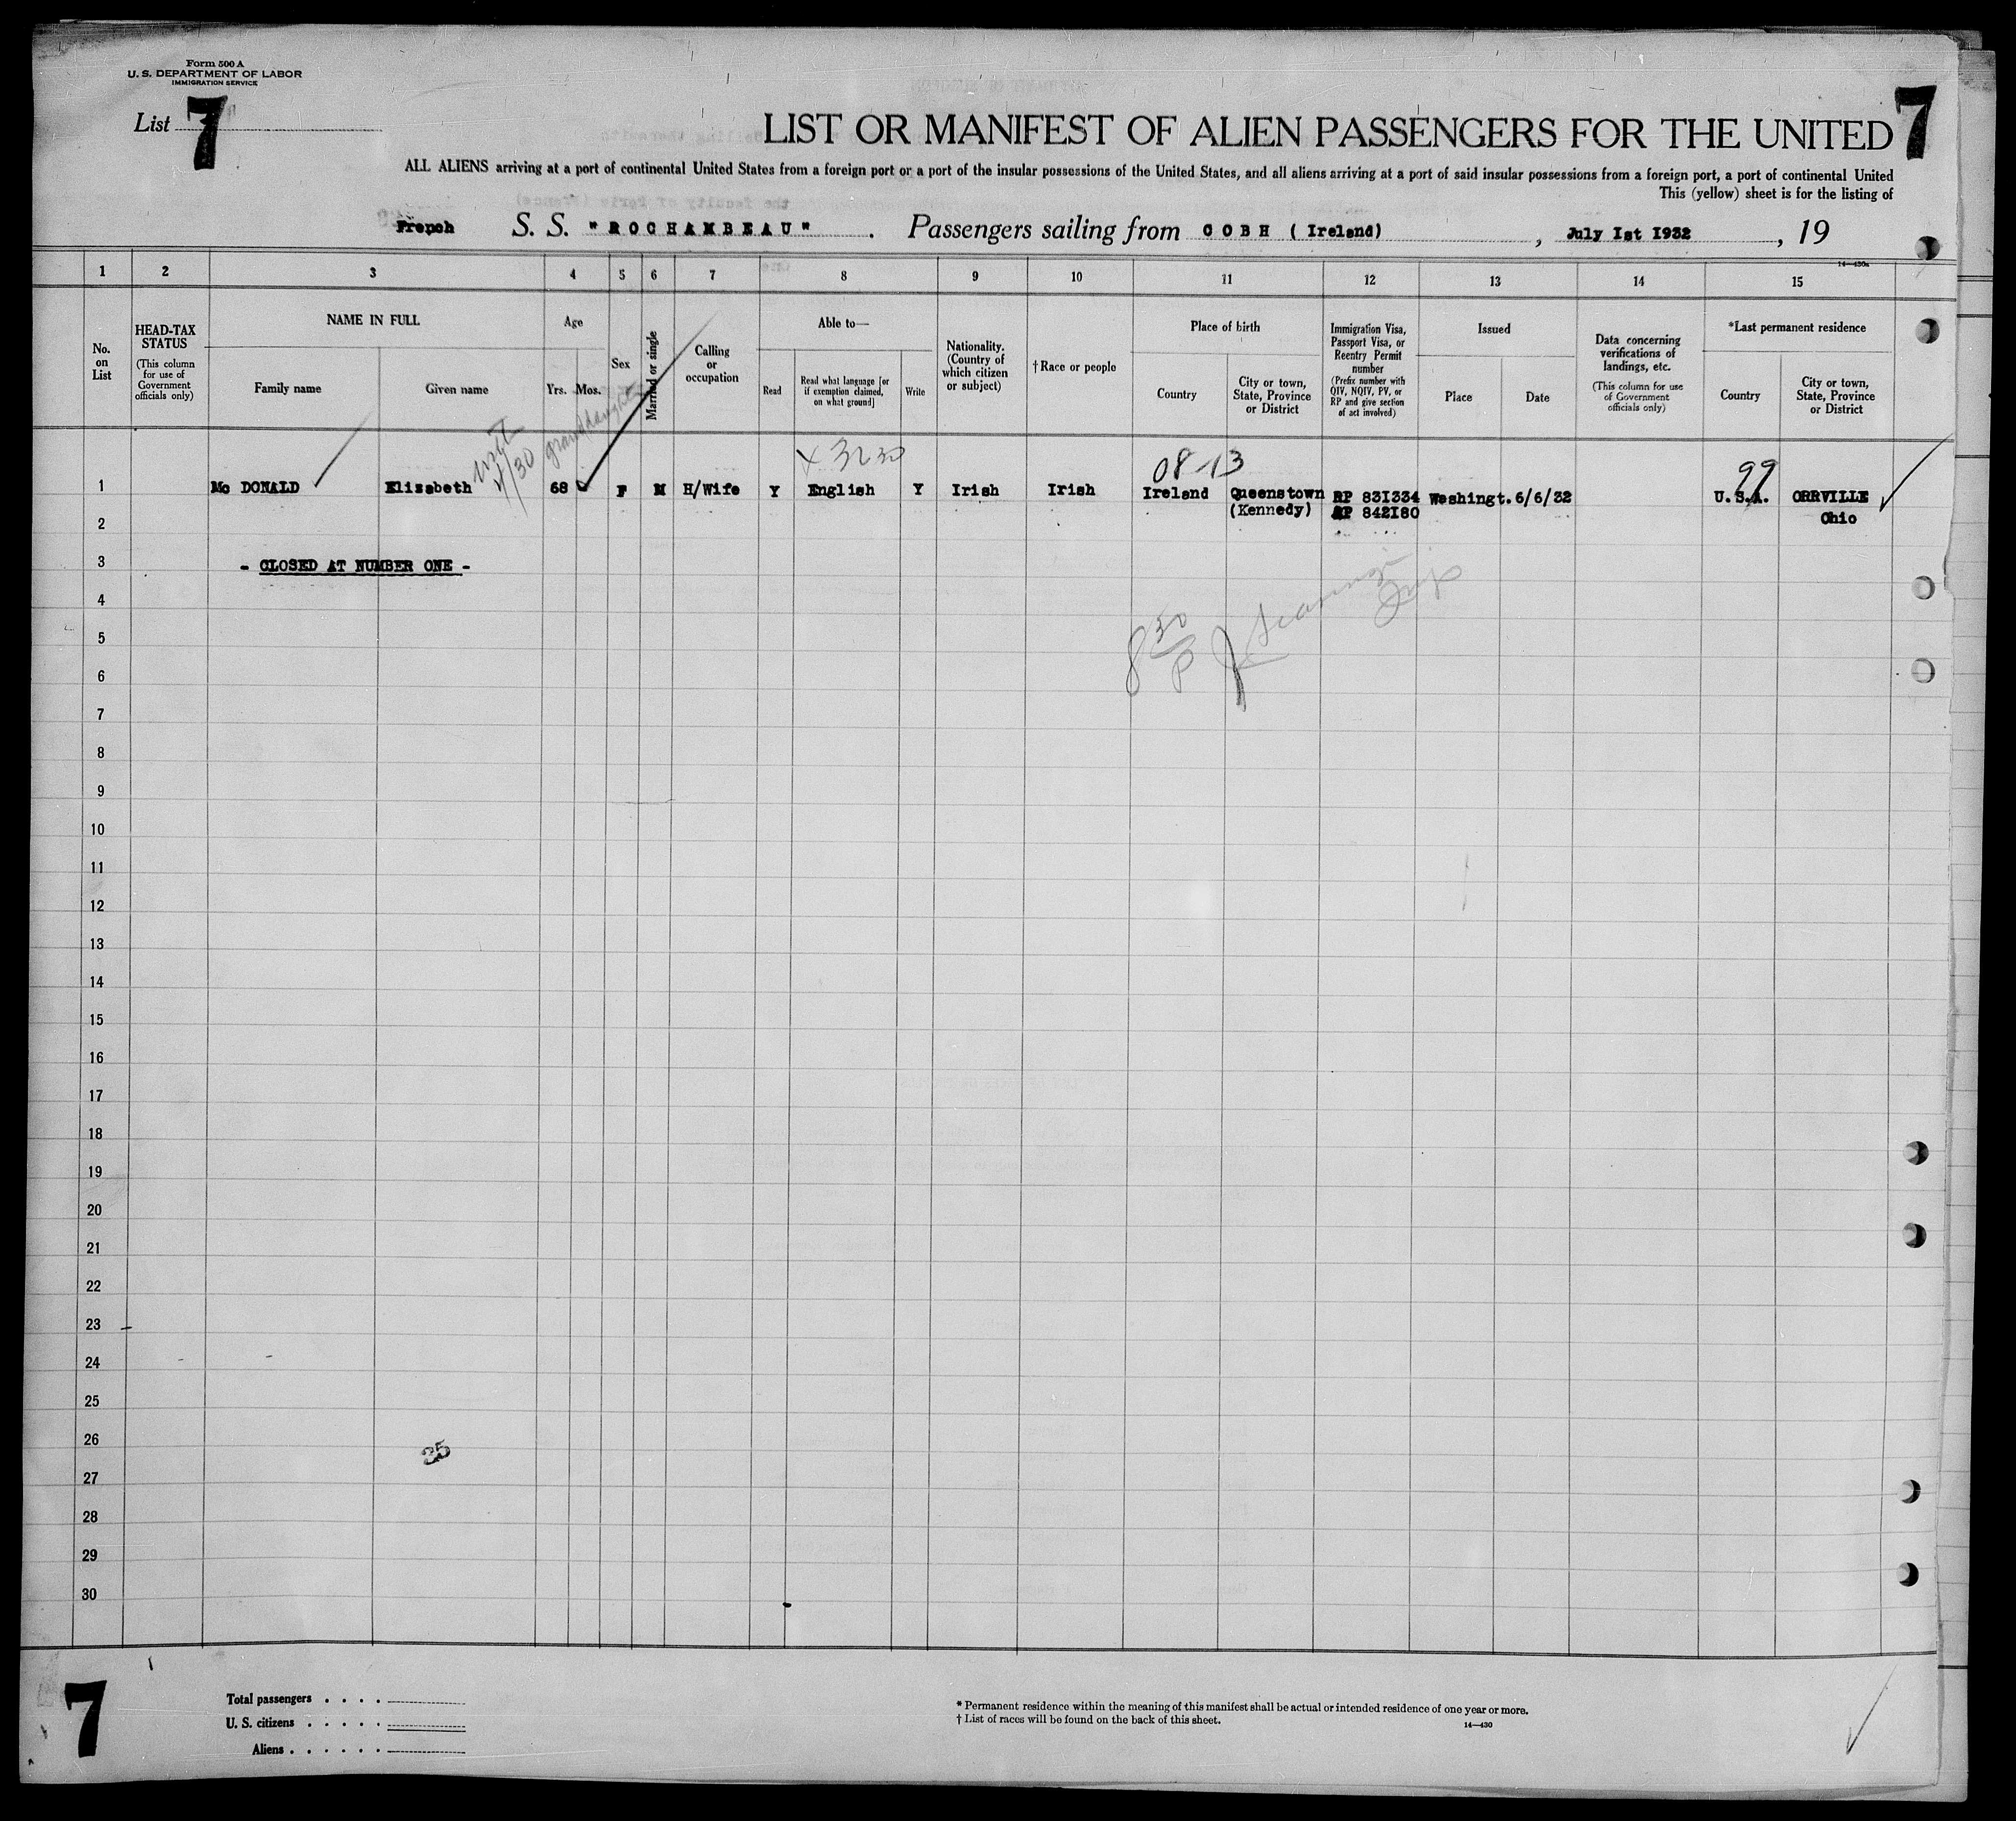 Form 500 A
U. S. DEPARTMENT OF LABOR
IMMIGRATION SERVICE
List 7
7
LIST OR MANIFEST OF ALIEN PASSENGERS FOR THE UNITED
ALL ALIENS arriving at a port of continental United States from a foreign port or a port of the insular possessions of the United States, and all aliens arriving at a port of said insular possessions from a foreign port, a port of continental United
This (yellow) sheet is for the listing of
French S. S. "ROCHAMBEAU". Passengers sailing from COBH (Ireland), July Ist I932, 19
14—430a
1 2 3 4 5 6 7 8 9 10 11 12 13 14 15
No. on List
HEAD-TAX STATUS
(This column for use of Government officials only)
NAME IN FULL
Family name
Given name
Age
Yrs. Mos.
Sex
Married or single
Calling or occupation
Able to—
Read
Read what language [or if exemption claimed, on what ground]
Write
Nationality. (Country of which citizen or subject)
†Race or people
Place of birth
Country
City or town, State, Province or District
Immigration Visa, Passport Visa, or Reentry Permit number
(Prefix number with QIV, NQIV, PV, or RP and give section of act involved)
Issued
Place
Date
Data concerning verifications of landings, etc.
(This column for use of Government officials only)
*Last permanent residence
Country
City or town, State, Province or District
with 1/30 granddaughter
x 3230
08-13
99
1 Mc DONALD Elisabeth 68 F M H/Wife Y English Y Irish Irish Ireland Queenstown RP 83I334 Washingt. 6/6/32 U.S.A. ORRVILLE
(Kennedy) RP 842I80 Ohio
2
3 - CLOSED AT NUMBER ONE -
4
8 30 P
5
6
7
8
9
10
11
12
13
14
15
16
17
18
19
20
21
22
23
24
25
26
35
27
28
29
30
7
Total passengers . . . .
U. S. citizens . . . . .
Aliens . . . . . .
* Permanent residence within the meaning of this manifest shall be actual or intended residence of one year or more.
† List of races will be found on the back of this sheet.
14—430